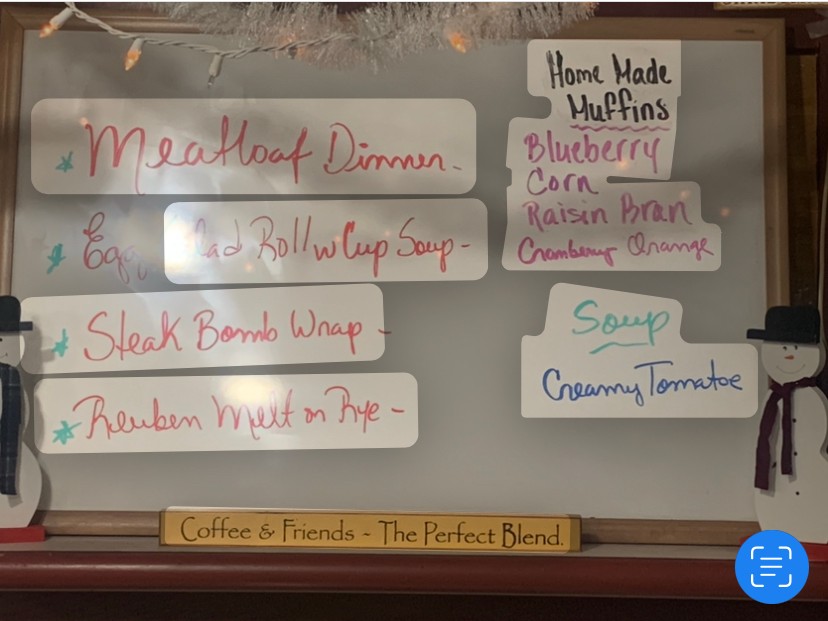 Meatloaf Dinner -
Egg Salad Roll w Cup Soup -
Steak Bomb Wrap -
Reuben Melt on Rye -
Home Made
Muffins
Blueberry
Corn
Raisin Bran
Cranberry Orange
Soup
Creamy Tomatoe
Coffee & Friends ~ The Perfect Blend.